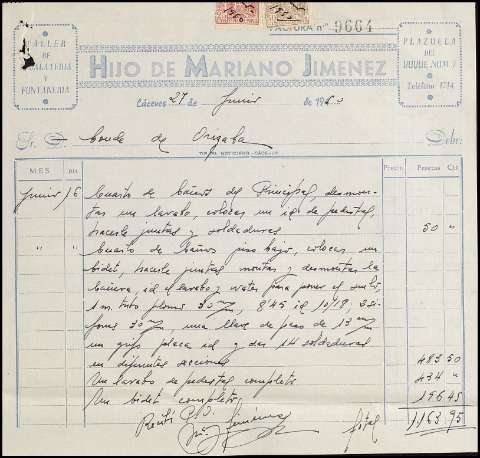 FACTURA Nº 9664
TALLER
DE
HOJALATERIA
Y
FONTANERIA
HIJO DE MARIANO JIMENEZ
PLAZUELA
DEL
DUQUE NUM. 7
Teléfono 1714
Cáceres 27 de Junio de 196
Sr. D. Conde de Orizaba Debe:
MES DIA Precio Pesetas Cts
Junio 16 Cuarto de baños del Principal, desmon-
tar un lavabo, colocar un id. de pedestal,
hacerle juntas y soldaduras 50 "
" " Cuarto de baños piso bajo, colocar un
bidet, hacerle juntas montar y desmontar la
bañera, id el lavabo y water para poner el suelo,
1 m. tubo plomo 30 m/m, 8'45 id 10/18, 2 si-
fones 30 m/m, una llave de paso de 13 m/m
un grifo placa id y dar 14 soldaduras
en diferentes secciones 483 50
Un lavabo de pedestal completo 434 "
Un bidet completo 196 45
Recibí Total 1.163,95
Jimenez